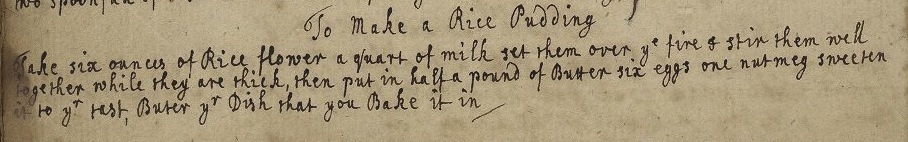 two spoonful of
To Make a Rice Pudding
Take six ounces of Rice flower a quart of milk set them over yᵉ fire & stir them well
together while they are thick, then put in half a pound of Butter six eggs one nutmeg sweeten
it to yʳ tast, Buter yʳ Dish that you Bake it in